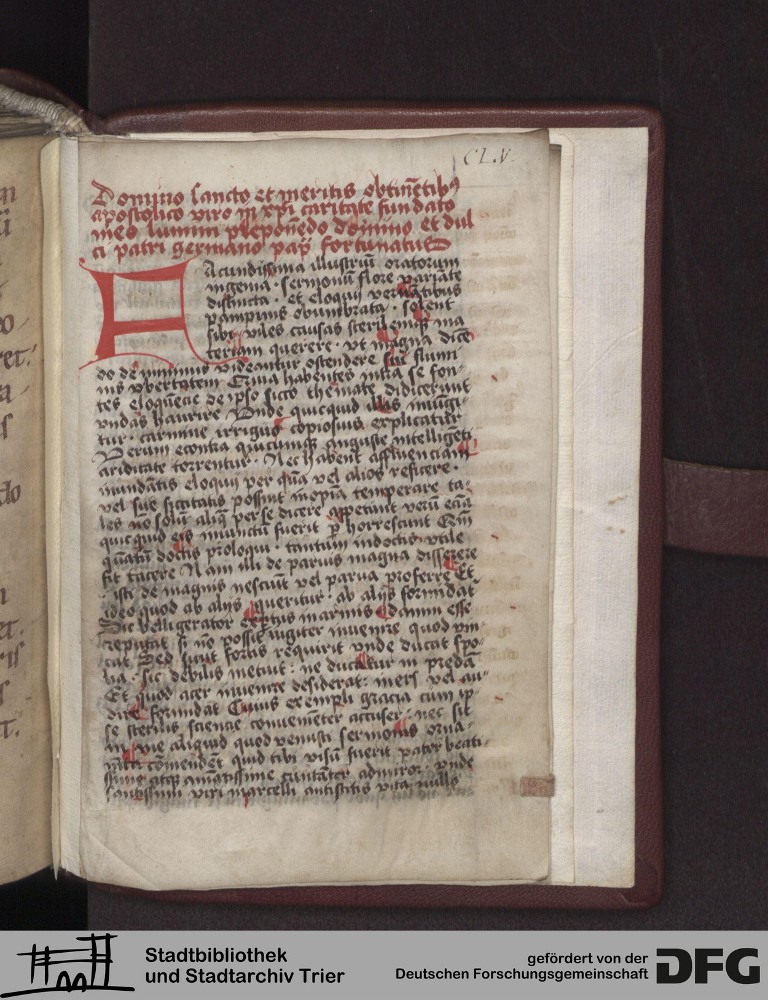 CLV.
Domino sancto et meritis obtinētibꝰ
apostolico viro in xpi caritate fundato
meo lumini preponēdo domino et dul
ci patri germano pap̄ fortunatus
Facundissima illustriū oratorum
ingenia · sermonum flore variate
distincta · et eloquii vernātibus
pampinis obumbrata · solent
sibi viles causas sterilemqꝫ ma
teriam querere · vt magna dicē
do de minimis videantur ostendere sui flumi
nis vbertatem Quia habentes intra se fon-
tes eloquēcie de ipso sicco themate didicerunt
vndas haurire Vnde quicquid illis iniungi-
tur · carmine irriguo copiosius explicatur
Verum econtra quicumqꝫ anguste intelligēti
ariditate torrentur · Nec habent affluenciam
inundātis eloquii per quā vel alios reficere ·
vel sue siccitatis possint inopiā temperare ta-
les nō solū aliqͥ per se dicere appetant verū eciā
quicquid eis iniunctū fuerit perhorrescunt Quin
quātū doctis proloqui · tantum indoctis vtile
sit tacere Nam illi de paruis magna disserere
· isti de magnis nesciunt vel parua proferre Et
ideo quod ab aliis queritur · ab aliis formidat
Sic belligerator expertus inermis damnū esse
reputat si nō possit iugiter inuenire quod vin
cat Sed sicut fortis requirit vnde ducat spo-
lia · sic debilis metuit · ne ducatur in predā
Et quod acer inuenire desiderat · iners vel au-
dire formidat Cuius exempli gracia cum ip-
se sterilis sciencie conuenienter accuser · nec sit
in me aliquid quod venusti sermonis orna-
mēti cōmendet quid tibi visū fuerit pater beati-
ssime atqꝫ amantissime cunctāter admiror vnde
sanctissimi viri marcelli antistitis vita nullis
Stadtbibliothek
und Stadtarchiv Trier
gefördert von der
Deutschen Forschungsgemeinschaft
DFG